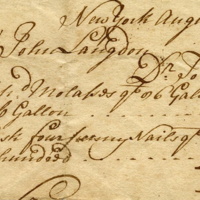 New York Aug
John Langdon
Dr. To
Molases qt 96 Gall
Gallon
four penny Nails qt
hundred